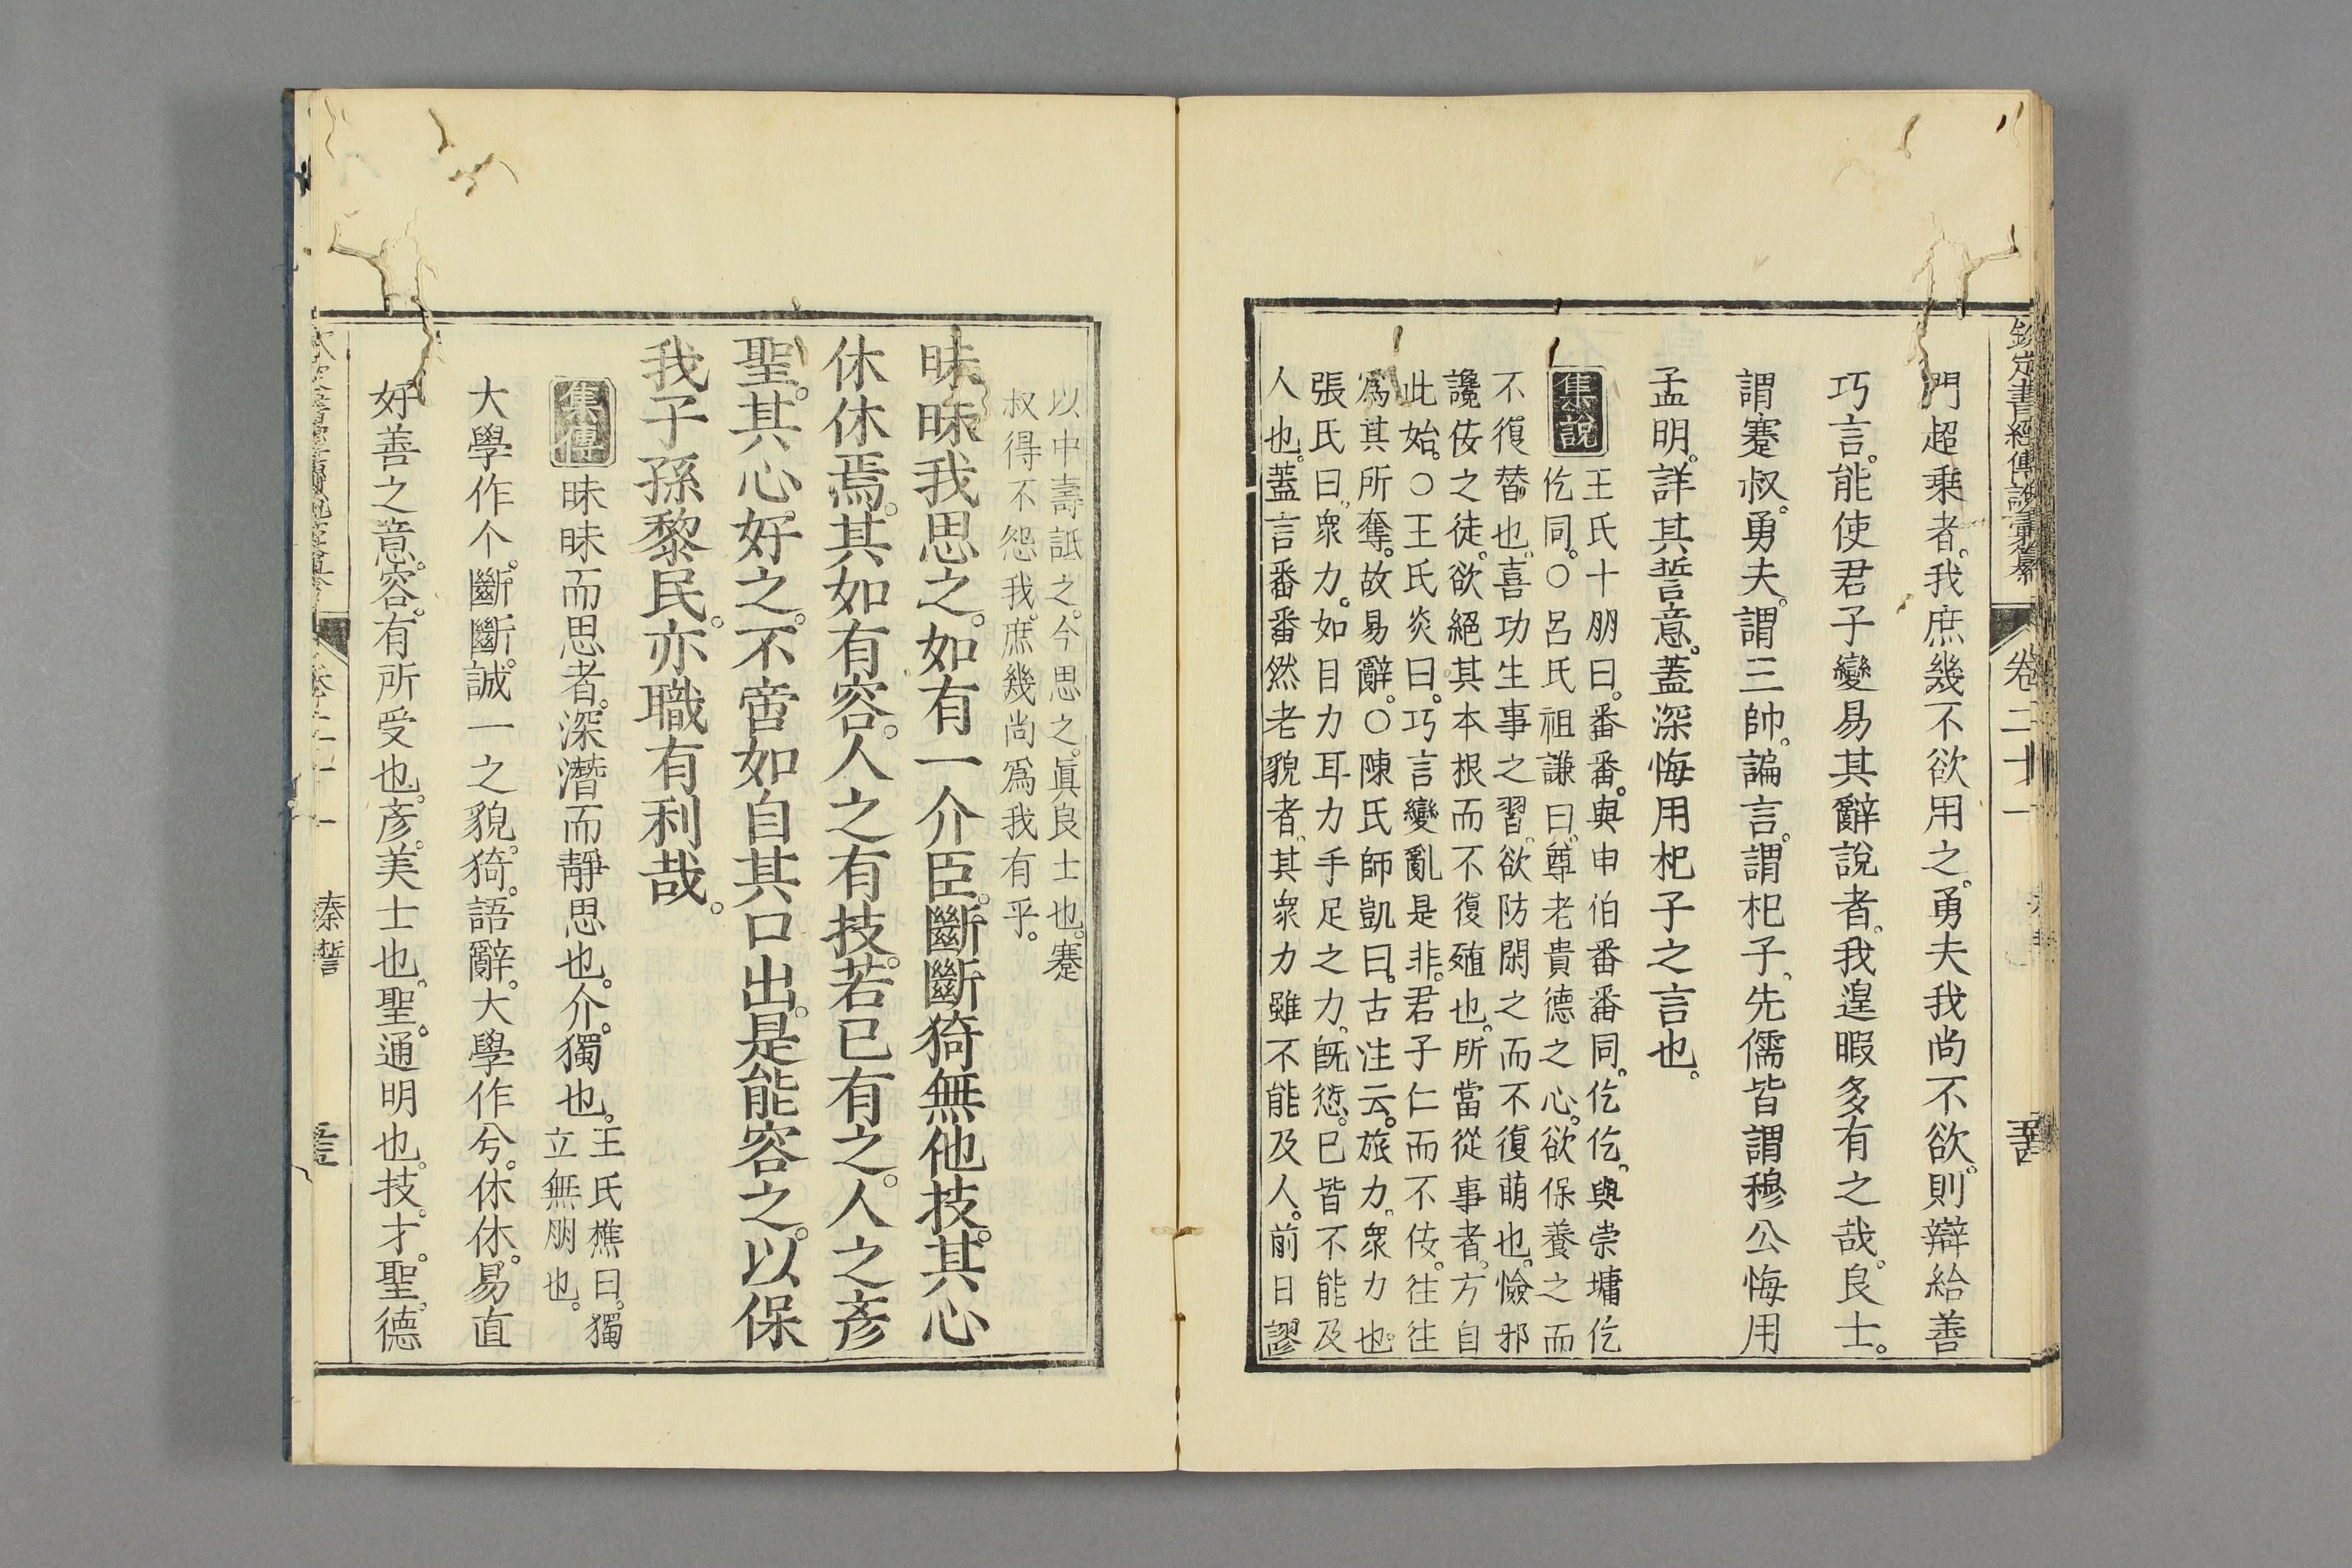 欽定書經傳說彙纂 卷二十一
門超乘者。我庶幾不欲用之。勇夫我尚不欲。則辯給善
巧言。能使君子變易其辭說者。我遑暇多有之哉。良士。
謂蹇叔。勇夫。謂三帥。諞言。謂杞子。先儒皆謂穆公悔用
孟明。詳其誓意。蓋深悔用杞子之言也。
集說
王氏十朋曰。番番。與申伯番番同。仡仡。與崇墉仡
仡同。○呂氏祖謙曰。尊老貴德之心。欲保養之而
不復替也。喜功生事之習。欲防閑之而不復萌也。憸邪
讒佞之徒。欲絕其本根而不復殖也。所當從事者。方自
此始。○王氏炎曰。巧言變亂是非。君子仁而不佞。往往
為其所奪。故易辭。○陳氏師凱曰。古注云。旅力。眾力也。
張氏曰。眾力。如目力耳力手足之力。既愆。已皆不能及
人也。蓋言番番然老貌者。其眾力雖不能及人。前日謬
以中壽詆之。今思之。眞良士也。蹇
叔得不怨我。庶幾尚爲我有乎。
昧昧我思之。如有一介臣。斷斷猗無他技。其心
休休焉。其如有容。人之有技。若已有之。人之彥
聖。其心好之。不啻如自其口出。是能容之。以保
我子孫黎民。亦職有利哉。
集傳
昧昧而思者。深潛而靜思也。介。獨也。
王氏樵曰。獨
立無朋也。
大學作个。斷斷。誠一之貌。猗。語辭。大學作兮。休休。易直
好善之意。容。有所受也。彥。美士也。聖。通明也。技。才。聖。德
秦誓